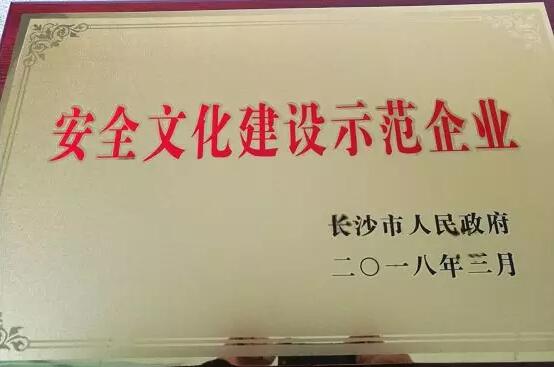 安全文化建设示范企业
长沙市人民政府
二〇一八年三月